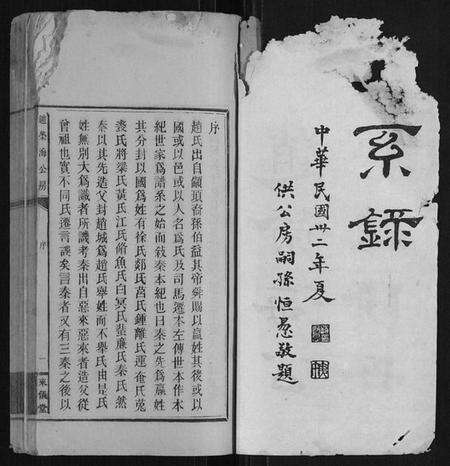 系錄
中華民國卅二年夏
供公房嗣孫恒懋敬題
序
趙氏出自顓頊裔孫伯益其帝舜賜以嬴姓其後或以
國或以邑或以人名爲氏及司馬遷本左傳世本作本
紀世家爲譜系之始而敍秦本紀也曰秦之先爲嬴姓
其分封以國爲姓有徐氏郯氏莒氏鍾離氏運奄氏菟
裘氏將梁氏黃氏江氏脩魚氏白冥氏蜚廉氏秦氏然
秦以其先造父封趙城爲趙氏舉姓而不舉氏由是氏
姓無別大爲識者所譏考秦出自惡來惡來者造父從
曾祖也實不同氏遷言誤矣言秦者又有三秦之後以
海公房
序
一
來儀堂